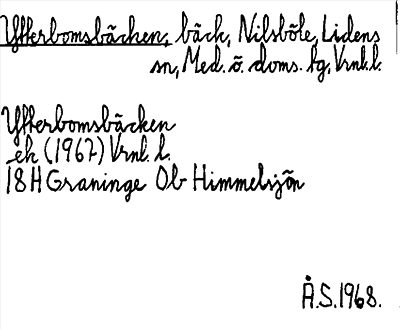 Ytterbomsbäcken, bäck, Nilsböle, Lidens
sn, Med. ö. doms. tg, Vrnl. l.
Ytterbomsbäcken
ek (1967) Vrnl. l.
18H Graninge Ob Himmelsjön
Å.S. 1968.